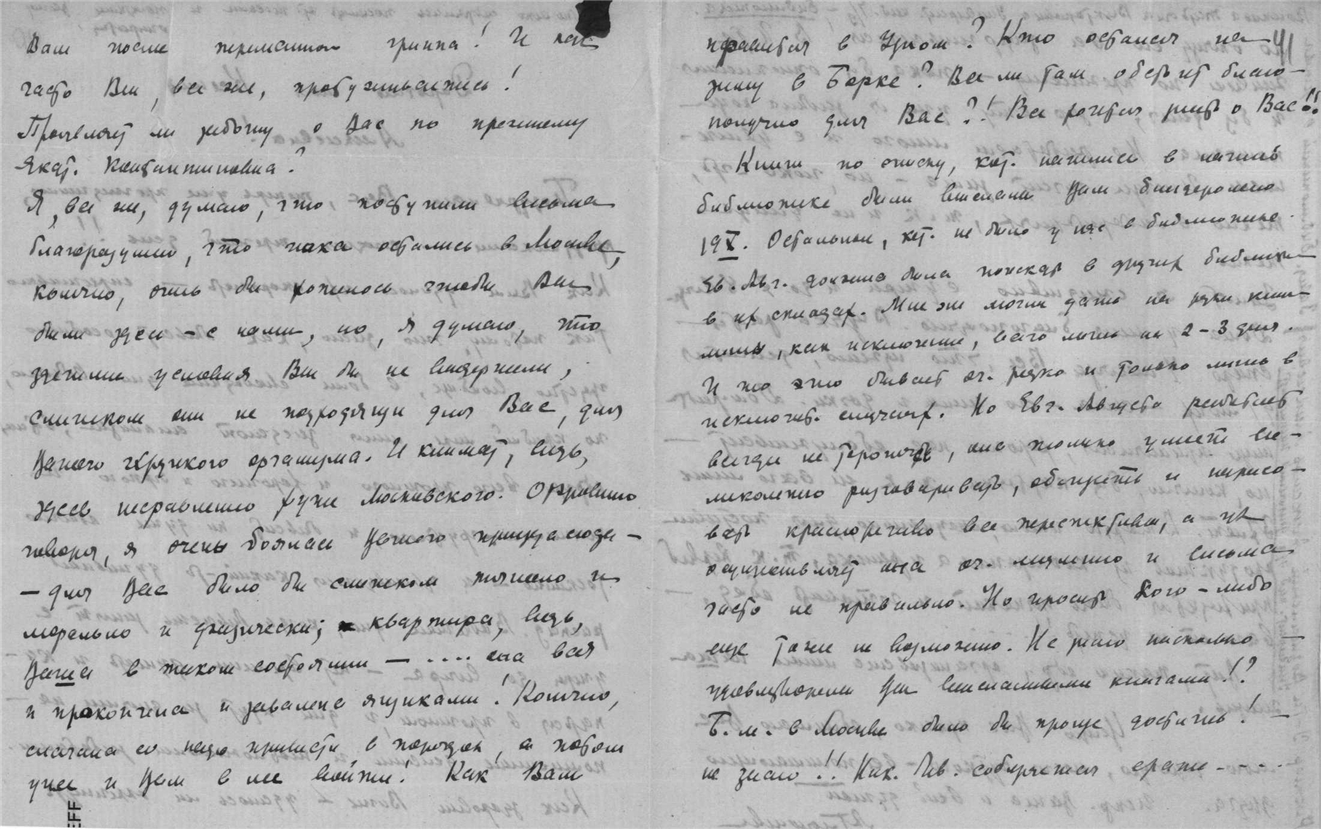 Вам после перемены гриппа! И как
часто Вы, все же, простуживались!
Проявляет ли заботу о Вас по прежнему
Екат. Константиновна?
Я, все же, думаю, что поступили весьма
благоразумно, что пока остались в Москве,
конечно, очень бы хотелось чтобы Вы
были здесь – с нами, но, я думаю, что
здешние условия Вы бы не выдержали,
слишком они не подходящи для Вас, для
Вашего хрупкого организма. И климат, ведь,
здесь несравненно хуже Московского. Откровенно
говоря, я очень боялась Вашего приезда сюда –
– для Вас было бы слишком тяжело и
морально и физически; квартира, ведь,
Ваша в таком состоянии – .... она вся
и прокопчена и завалена ящиками! Конечно,
сначала ее надо привести в порядок, а потом
уже и Вам в нее войти! Как Вам
41
нравится в Узком? Кто остался на
зиму в Борке? Все ли там обстоит благо–
получно для Вас?! Все хочется знать о Вас!!
Книги по списку, кот. нашлись в нашей
библиотеке были высланы Вам бандеролью
19 V. Остальные, кот. не было у нас в библиотеке
Ев. Авг. должна была поискать в других библиот.
в их складах. Мне же могли дать на руки книги
лишь, как исключение, всего лишь на 2–3 дня.
И то это бывает оч. редко и только лишь в
исключит. случаях. Но Евг. Августа
всегда не торопится, она только умеет ве–
ликолепно разговаривать, обещать и нарисо–
вать красноречиво все перспективы, а уж
осуществляет она оч. медленно и весьма
часто не правильно. Но просить кого–либо
еще тоже не возможно. Не знаю насколько –
удовлетворены Вы высланными книгами!?
Б. м. в Москве было бы проще достичь! –
не знаю!! Ник. собирается